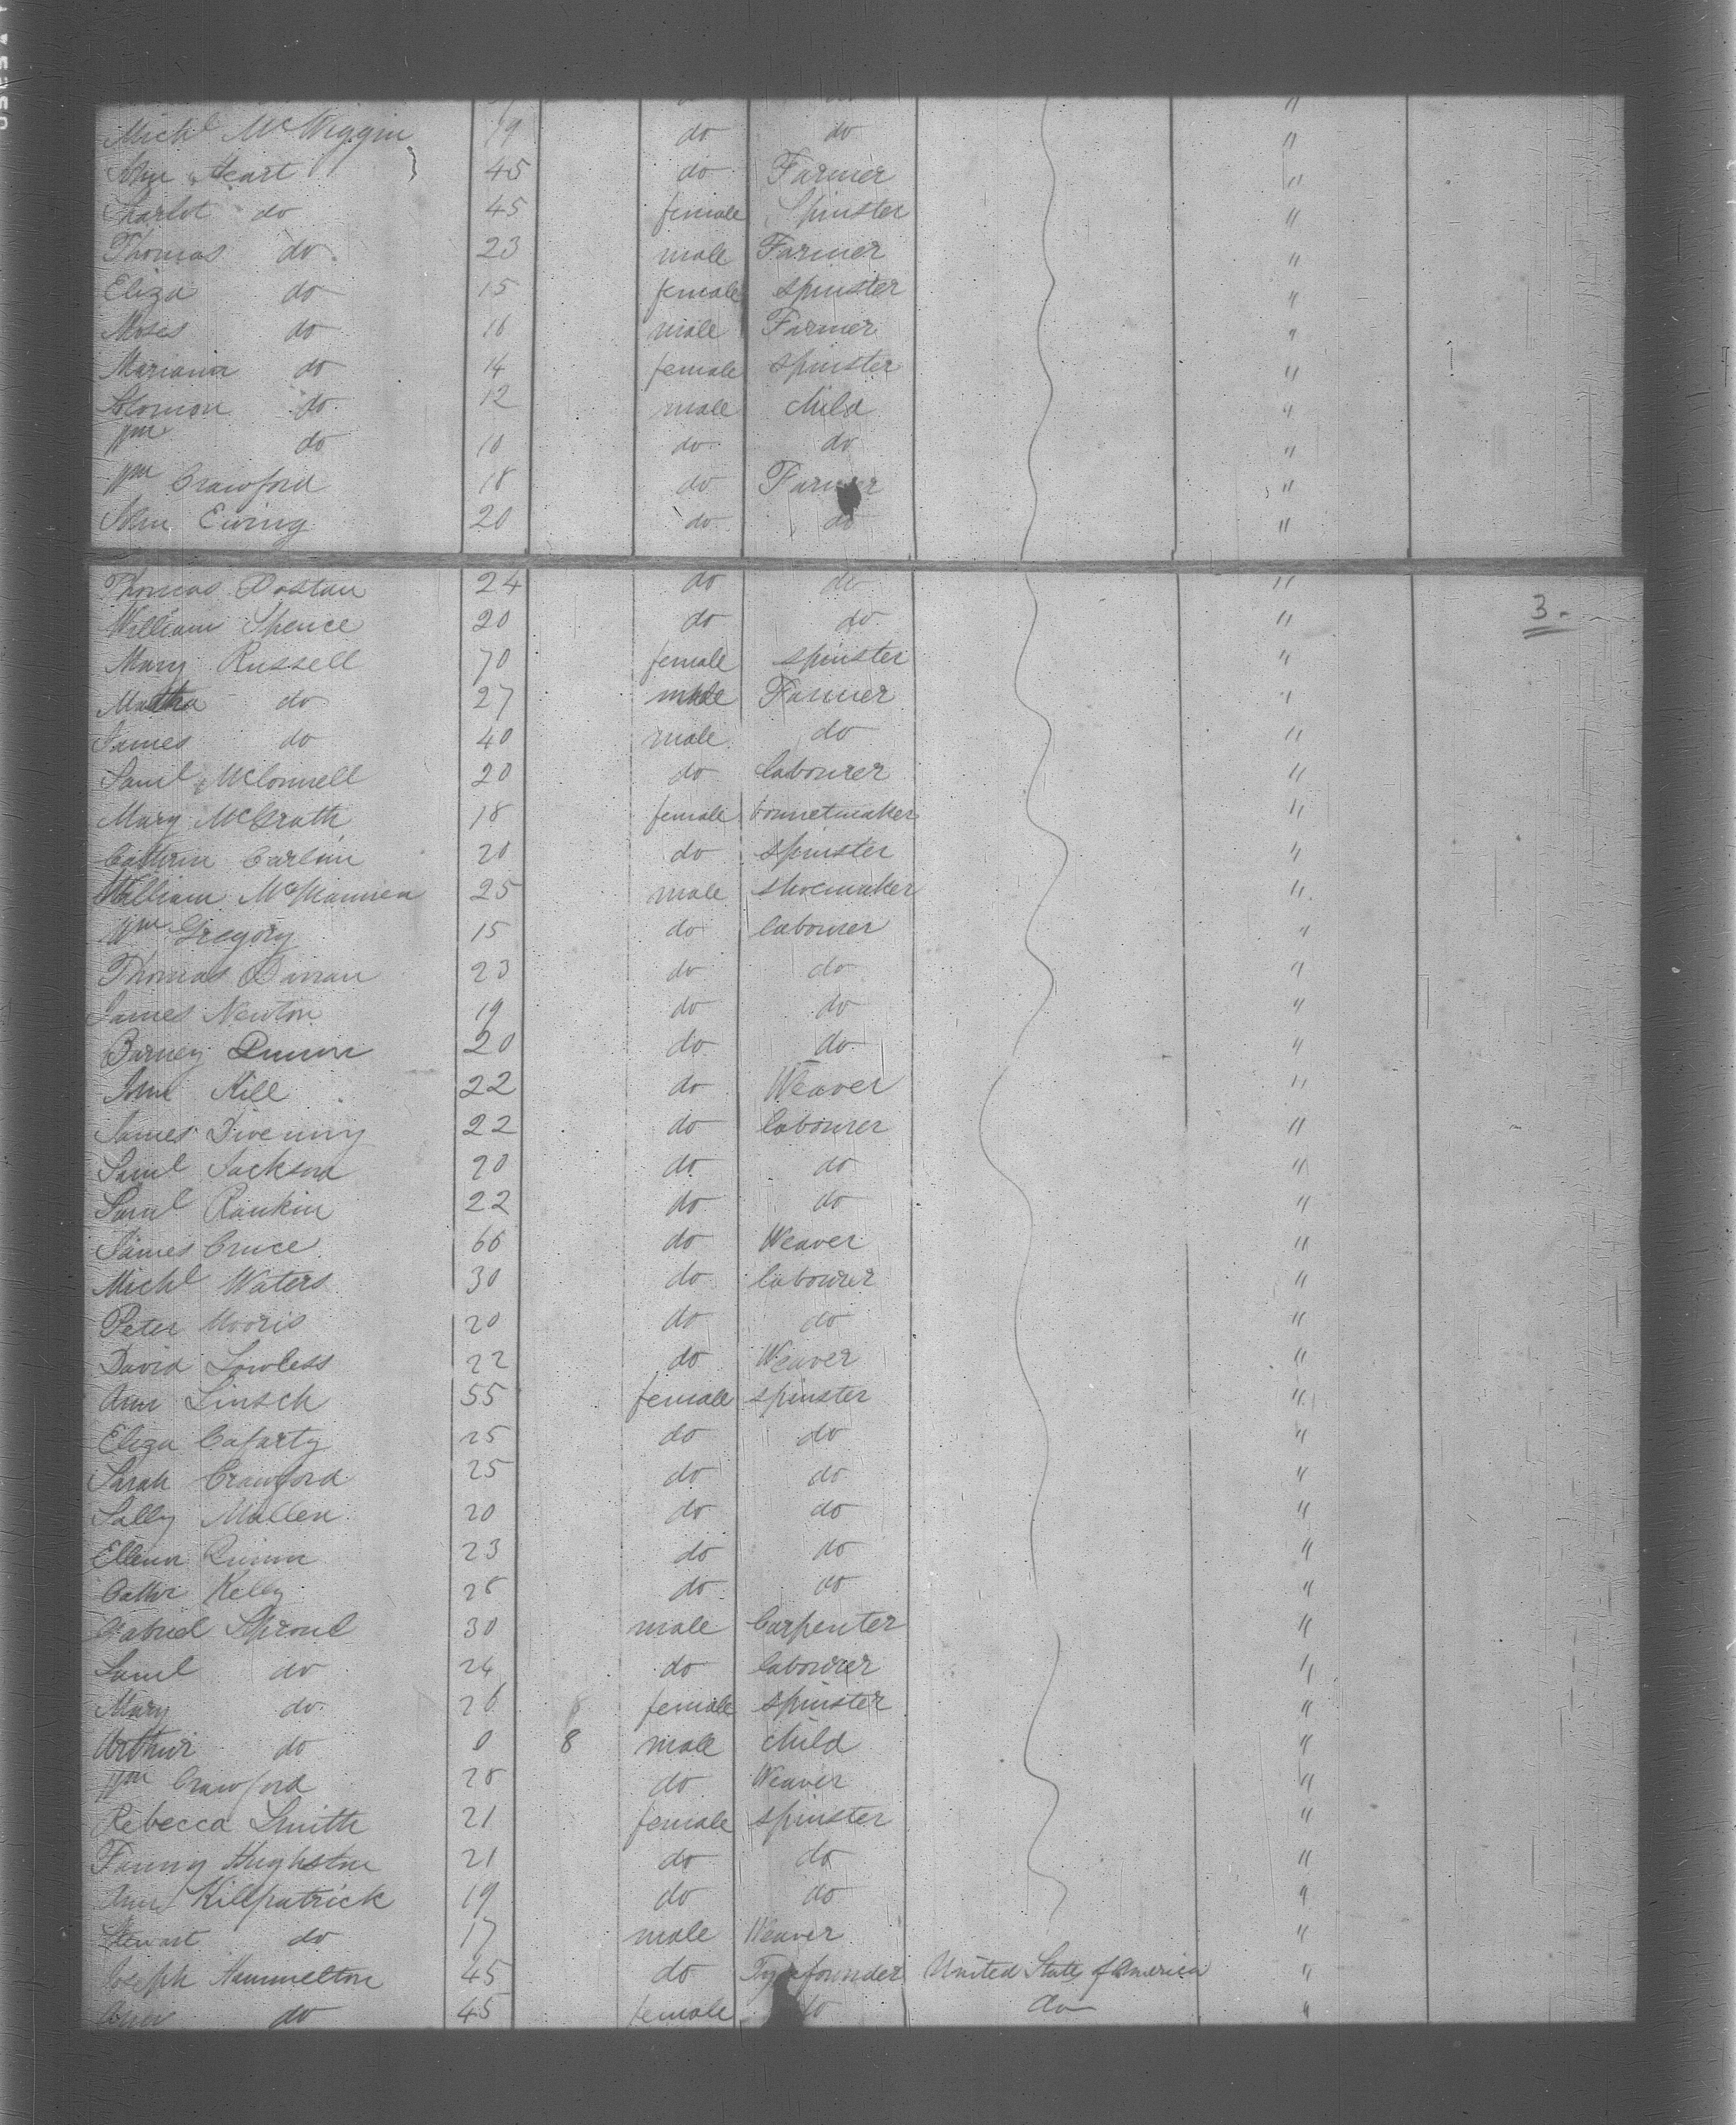 Michl McWiggin 19 do do "
John Heart 45 do Farmer "
Charlot do 45 female Spinster "
Thomas do 23 male Farmer "
Eliza do 15 female Spinster "
Moses do 16 male Farmer "
Mariana do 14 female Spinster "
Solomon do 12 male child "
Wm do 10 do do "
Wm Crawford 18 do Farmer "
John Ewing 20 do do "
Thomas 24 do do "
William Spence 20 do do " 3.
Mary Russell 70 female spinster "
Martha do 27 male Farmer "
James do 40 male do "
Saml McConnell 20 do labourer "
Mary McGrath 18 female bonnetmaker "
Cathrin Carlin 20 do spinster "
William 25 male shoemaker "
Wm Gregory 15 do labourer "
Thomas 23 do do "
James Newton 19 do do "
Barney Quinn 20 do do "
John Kill 22 do Weaver "
James Divenny 22 do labourer "
Saml Jackson 20 do do "
Saml Rankin 22 do do "
James Cruce 66 do Weaver "
Michl Waters 30 do labourer "
Peter Morris 20 do do "
David Lowless 22 do Weaver "
Ann Linsch 55 female spinster "
Eliza Cafarty 25 do do "
Sarah Crawford 25 do do "
Sally Mullen 20 do do "
Ellenn Quinn 23 do do "
Cathr Kelly do do "
Gabriel Sproul 30 male Carpenter "
Saml do 24 do labourer "
Mary do 26 female spinster "
Arthur do 0 8 male child "
Wm Crawford 28 do Weaver "
Rebecca Smith 21 female spinster "
Fanny Hughston 21 do do "
Ann Killpatrick 19 do do "
Stewart do 17 male Weaver "
Joseph Hammelton 45 do Typefounder United State of America "
Ann do 45 female do do "